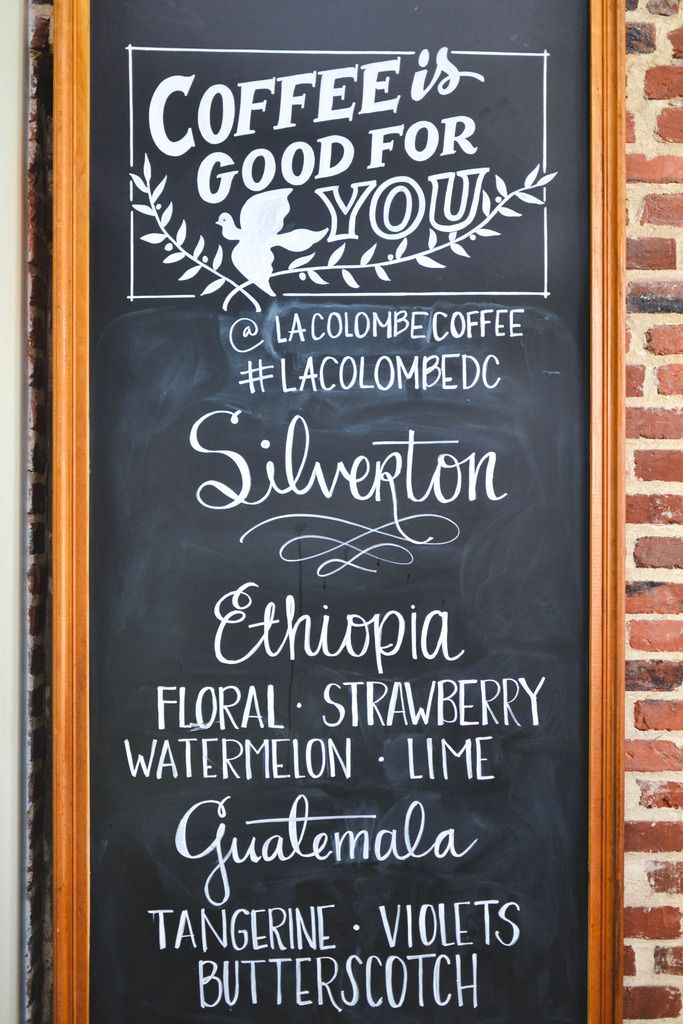 COFFEE is
GOOD FOR
YOU
@LACOLOMBECOFFEE
#LACOLOMBEDC
Silverton
Ethiopia
FLORAL · STRAWBERRY
WATERMELON · LIME
Guatemala
TANGERINE · VIOLETS
BUTTERSCOTCH